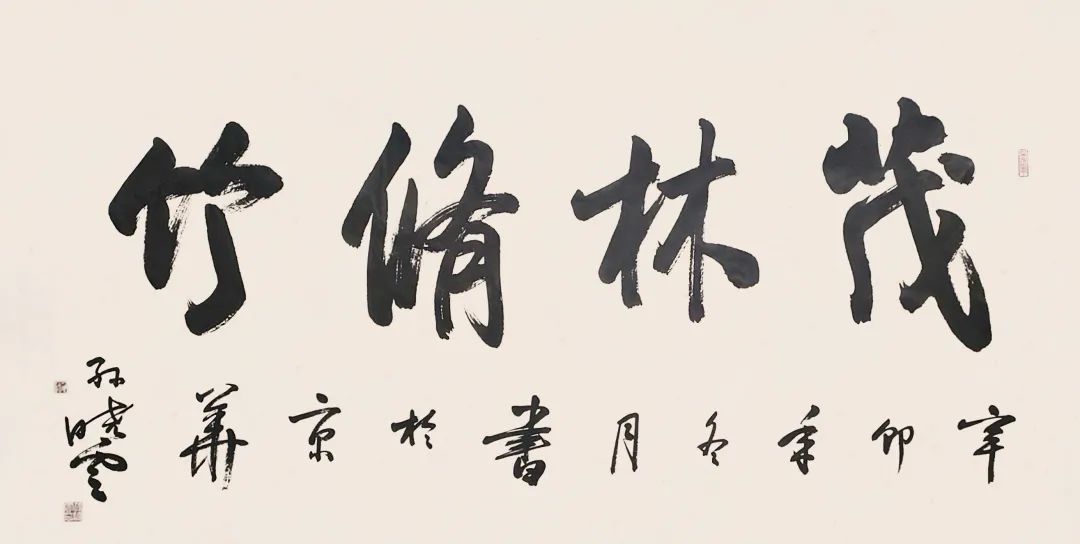 茂林脩竹
辛卯年冬月書於京華
孙晓雲